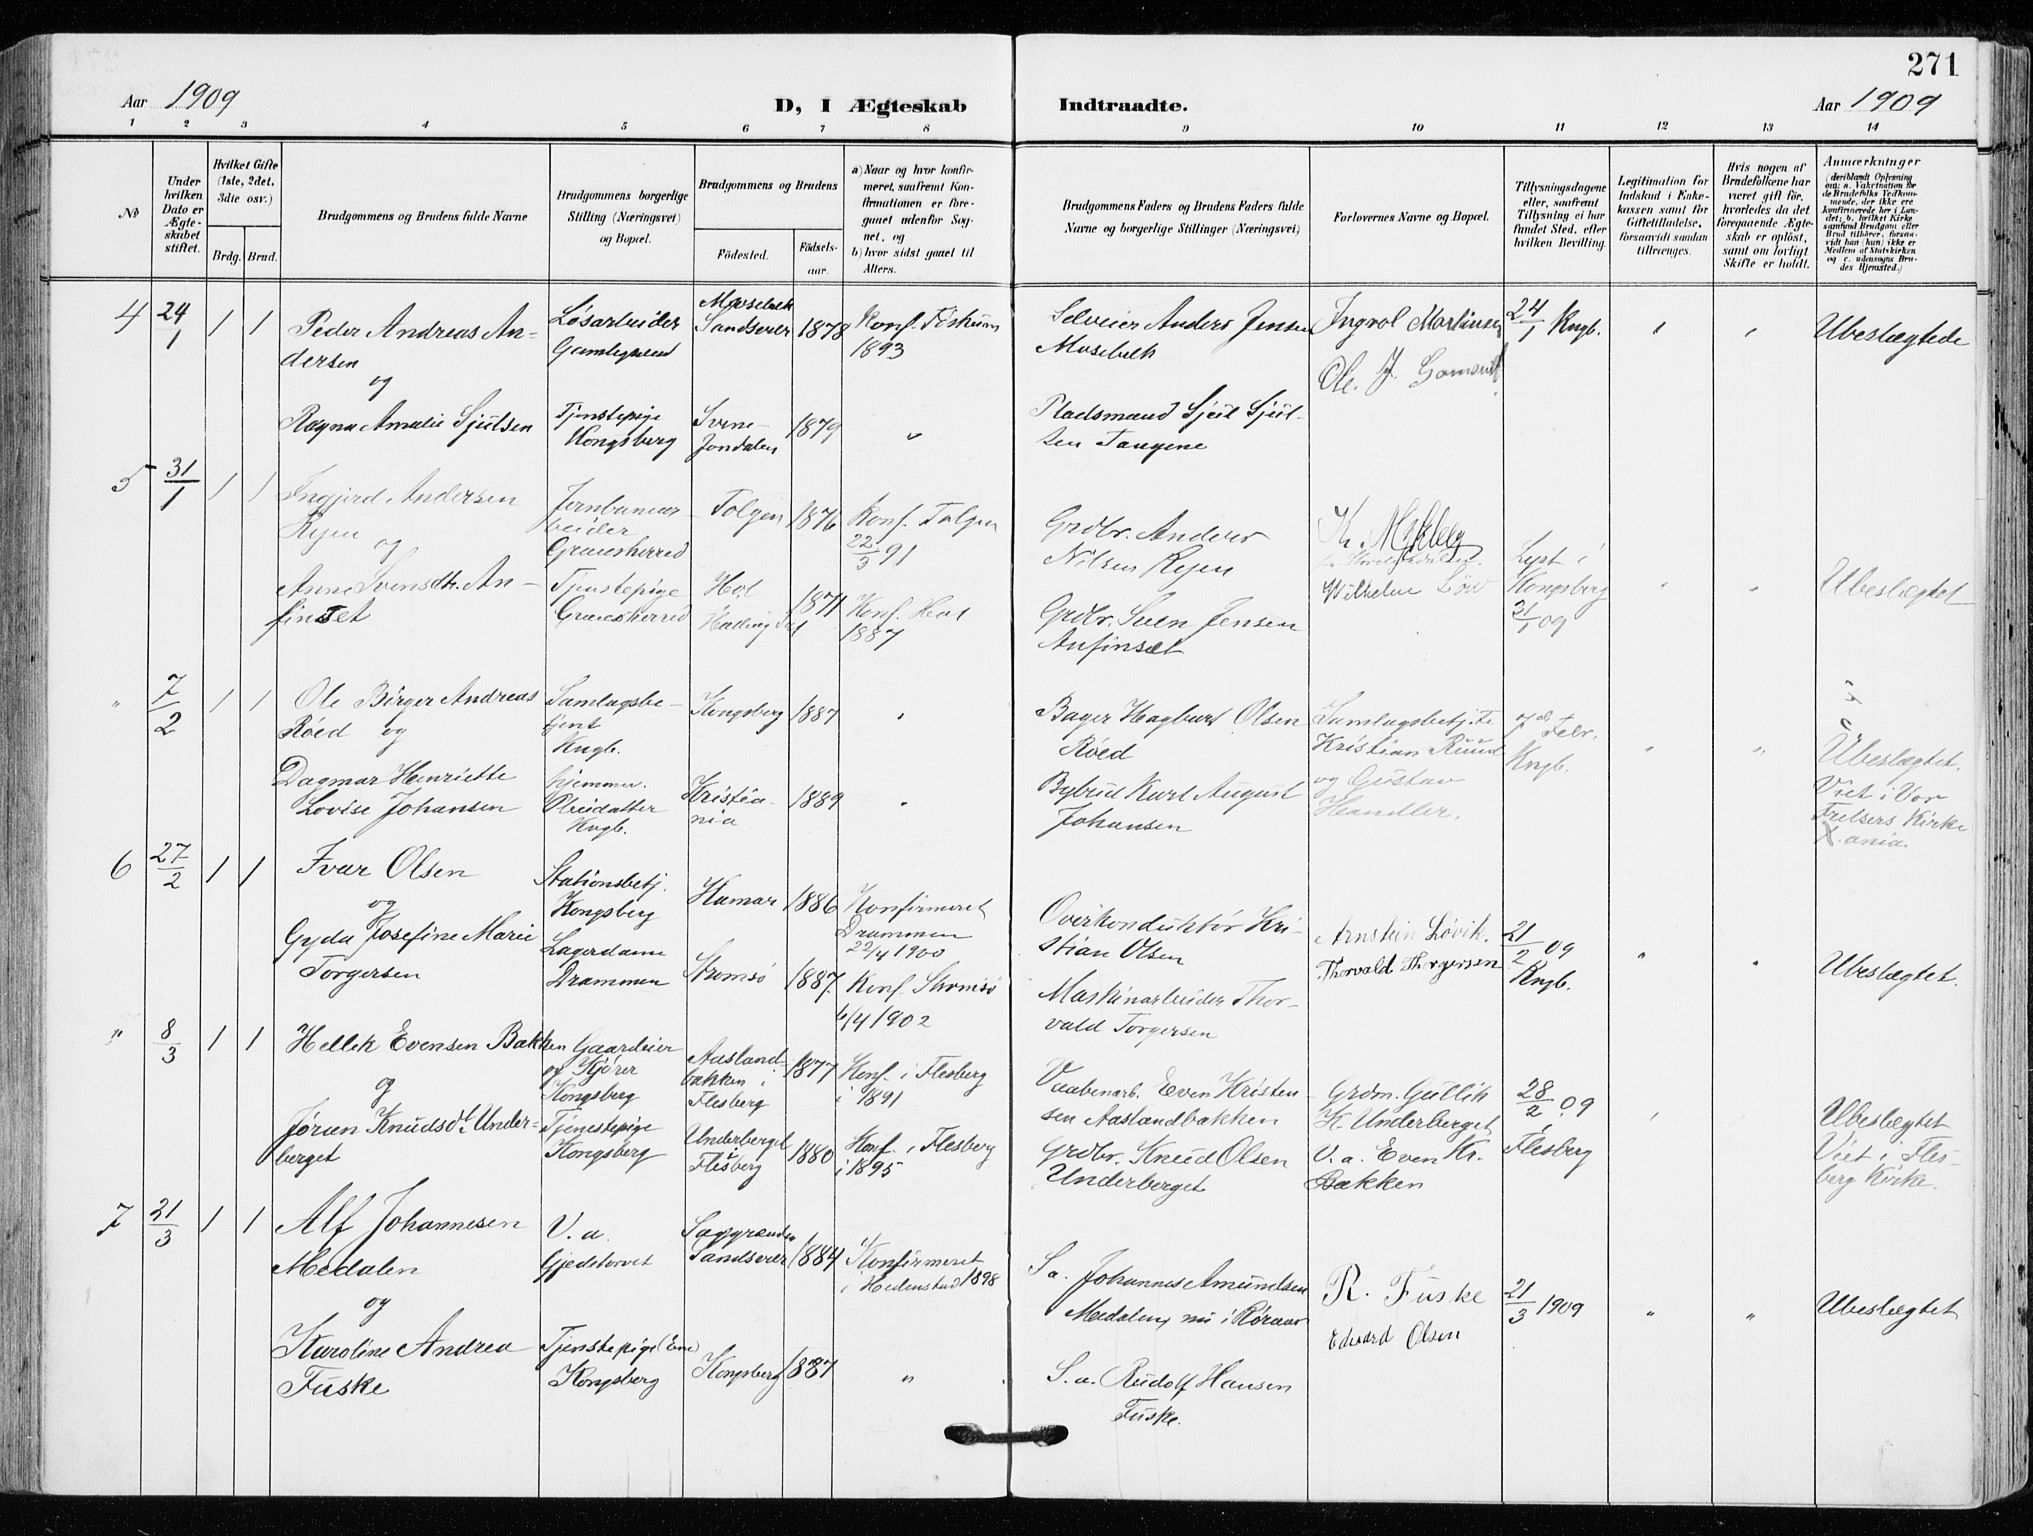 271
Aar 1909
D, I Ægteskab Indtraadte.
Aar 1909
1 2 3 4 5 6 7 8 9 10 11 12 13 14
No
Under hvilken Dato er Ægteskabet stiftet.
Hvilket Gifte (1ste, 2det, 3die osv.)
Brdg. Brud.
Brudgommens og Brudens fulde Navne
Brudgommens borgerlige Stilling (Næringsvei) og Bopæl.
Brudgommens og Brudens
Fødested.
Fødsels-aar.
a) Naar og hvor konfirmeret, saafremt Konfirmationen er foregaaet udenfor Sognet, og
b) hvor sidst gaaet til Alters.
Brudgommens Faders og Brudens Faders fulde Navne og borgerlige Stillinger (Næringsvei)
Forlovernes Navne og Bopæl.
Tillysningsdagene eller, saafremt Tillysning ei har fundet Sted, efter hvilken Bevilling.
Legitimation for Indskud i Enkekassen samt for Giftetilladelse, forsaavidt saadan tiltrænges.
Hvis nogen af Brudefolkene har været gift før, hvorledes da det foregaaende Ægteskab er opløst, samt om lovligt Skifte er holdt.
Anmærkninger
(deriblandt Oplysning om: a. Vakcination for de Brudefolks Vedkommende, der ikke ere konfirmerede her i Landet; b. hvilket Kirkesamfund Brudgom eller Brud tilhører, forsaavidt han (hun) ikke er Medlem af Statskirken og c. udensogns Brudes Hjemsted.)
4 24/1 1 1 Peder Andreas An-
dersen
og
Løsarbeider
Sandsvær 1878 Konf. Fiskum
1893
Selveier Anders Jensen
Mosebæk
Ingvol Martinsen
Ole. J.
24/1 Kngb. " " Ubeslægtede
Ragna Amalie Sjulsen
Tjenstepige
Kongsberg
Svene
Jondalen 1879 "
Pladsmand Sjul Sjul-
sen Tangene
5 31/1 1 1 Ingjerd Andersen
Ryen
og
Jernbanear-
beider
Gravesherred
Tolgen 1876 Konf. Tolgen
22/3 91
Grdbr. Anders
Nilsen Ryen
Wilhelm Løw
Lyst i
Kongsberg
31/1 09
" " Ubeslægtet
Anne Svensdtr. An-
finset
Tjenstepige
Gravesherred
Hol
Hallingdal 1871 Konf. Hol
1887
Grdbr. Sven Jensen
Anfinset
" 7/2 1 1 Ole Birger Andreas
Røed og
Samlagsbe-
tjent
Kngb.
Kongsberg 1887 "
Bager Hagbart Olsen
Røed
Samlagsbetj.te
Kristian Ruud
og Gustav
Handler.
7de Febr.
Kngb.
" " Ubeslægtet.
Viet i Vor
Frelsers Kirke
X.ania.
Dagmar Henriette
Lovise Johansen
hjemmev.
Pleiedatter
Kngb.
Kristia-
nia 1889 "
Bybud Karl August
Johansen
6 27/2 1 1 Ivar Olsen
og
Stationsbetj.
Kongsberg
Hamar 1886 Konfirmeret
Drammen
22/4 1900
Overkonduktør Kri-
stian Olsen
Arnstein Løvik.
Thorvald Thorgersen
21/2 09
Kngb.
" " Ubeslægtet.
Gyda Josefine Marie
Torgersen
Lagerdame
Drammen
Strømsø 1887 Konf. Strømsø
6/4 1902
Maskinarbeider Thor-
vald Torgersen
" 8/3 1 1 Hellik Evensen Bakken
og
Gaardeier
og Kjører
Kongsberg
Aasland-
bakken i
Flesberg 1877 Konf. i Flesberg
i 1891
Vaabenarb. Even Kristen-
sen Aaslandbakken
Grdm. Gullik
K. Underberget
V. a. Even Kr.
Bakken
28/2 09
Flesberg
" Ubeslægtet
Viet i Fles-
berg Kirke.
Jøran Knudsdt. Under-
berget
Tjenestepige
Kongsberg
Underberget
i Flesberg 1880 Konf. i Flesberg
i 1895
Grdbr. Knud Olsen
Underberget
7 21/3 1 1 Alf Johannesen
Medalen
og
V. a.
Gjedetorvet
Saggrenden
Sandsvær 1884 Konfirmeret
i Hedenstad 1898
S a. Johannes Amundsen
Medalen, nu i Røraas
R. Fuske
Edvard Olsen
21/3 1909 " " Ubeslægtet
Karoline Andrea
Fuske
Tjenstepige (Ene)
Kongsberg
Kongsberg 1887 "
S. a. Rudolf Hansen
Fuske.